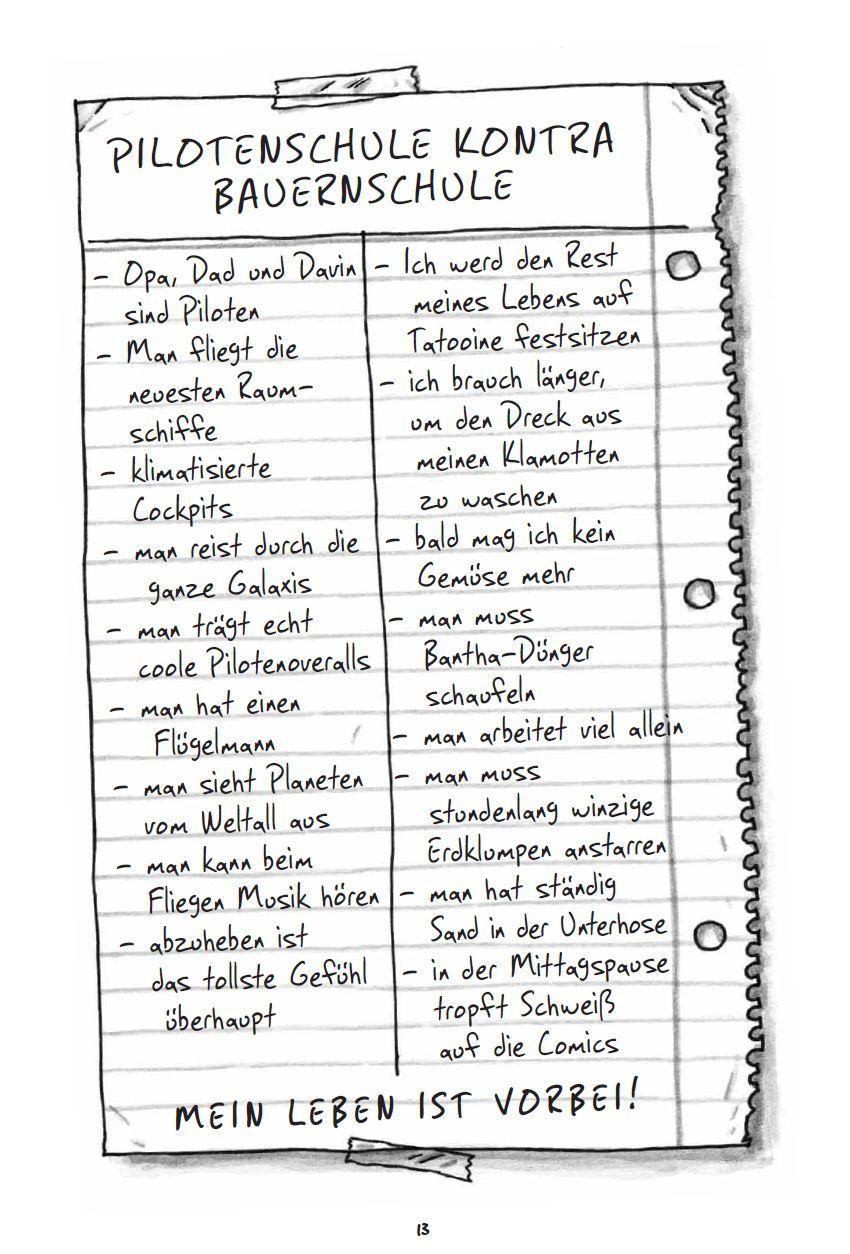 PILOTENSCHULE KONTRA
BAUERNSCHULE
– Opa, Dad und Davin
sind Piloten
– Man fliegt die
neuesten Raum-
schiffe
– klimatisierte
Cockpits
– man reist durch die
ganze Galaxis
– man trägt echt
coole Pilotenoveralls
– man hat einen
Flügelmann
– man sieht Planeten
vom Weltall aus
– man kann beim
Fliegen Musik hören
– abzuheben ist
das tollste Gefühl
überhaupt
– Ich werd den Rest
meines Lebens auf
Tatooine festsitzen
– ich brauch länger,
um den Dreck aus
meinen Klamotten
zu waschen
– bald mag ich kein
Gemüse mehr
– man muss
Bantha-Dünger
schaufeln
– man arbeitet viel allein
– man muss
stundenlang winzige
Erdklumpen anstarren
– man hat ständig
Sand in der Unterhose
– in der Mittagspause
tropft Schweiß
auf die Comics
MEIN LEBEN IST VORBEI!
13